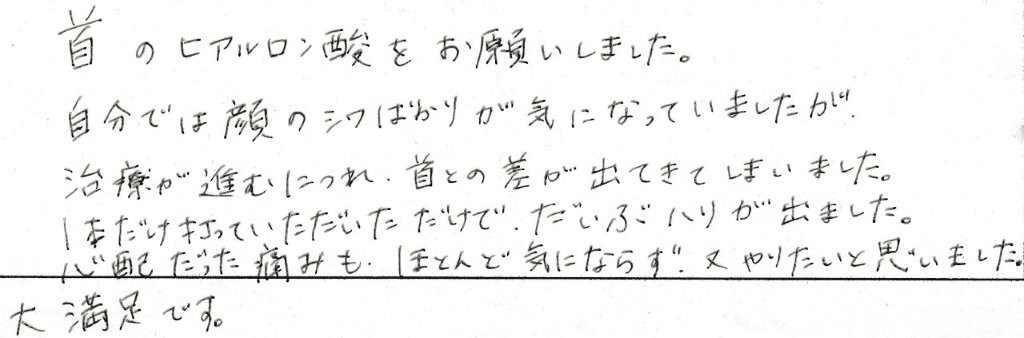 首のヒアルロン酸をお願いしました。
自分では顔のシワばかりが気になっていましたが、
治療が進むにつれ、首との差が出てきてしまいました。
1本だけ打っていただいただけで、だいぶハリが出ました。
心配だった痛みも、ほとんど気にならず、又やりたいと思いました。
大満足です。